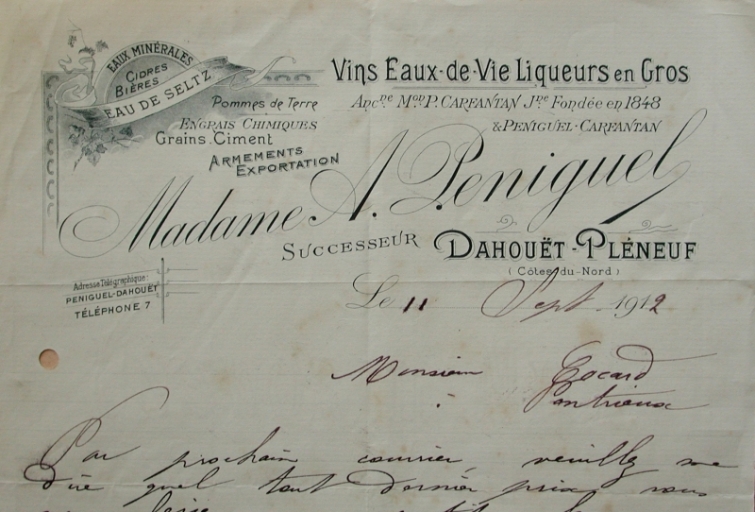 EAUX MINÉRALES
CIDRES
BIÈRES
EAU DE SELTZ
Pommes de Terre
ENGRAIS CHIMIQUES
Grains. Ciment
ARMEMENTS
EXPORTATION
Vins Eaux-de-Vie Liqueurs en Gros
Anc.ne M.on P. CARFANTAN J.ne Fondée en 1848
& PENIGUEL-CARFANTAN
Madame A. Peniguel
SUCCESSEUR DAHOUËT-PLÉNEUF
(Côtes-du-Nord)
Adresse Télégraphique:
PENIGUEL-DAHOUËT
TÉLÉPHONE 7
Le 11 Sept 1912
Monsieur Gocard
à Pontrieux
Par prochain courrier, veuillez me
dire quel tout dernier prix vous